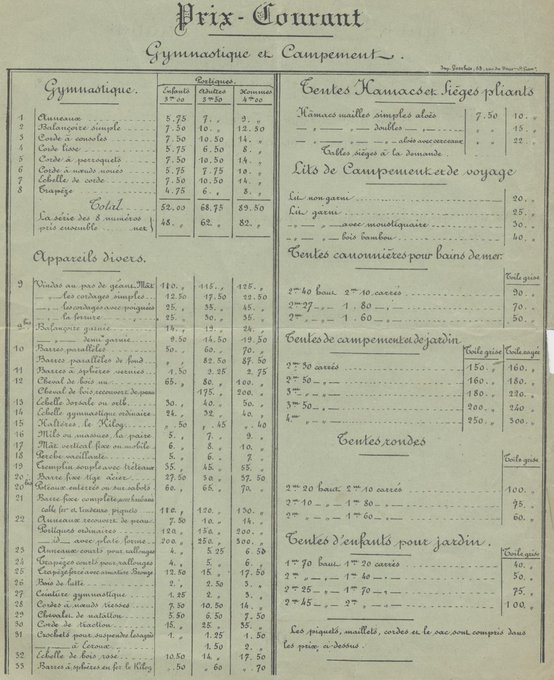 Prix-Courant
Gymnastique et Campement.
Gymnastique.
Portiques.
Enfants Adultes Hommes
3m00 3m50 4m00
1 Anneaux 5.75 7. „ 9. „
2 Balançoire simple 7.50 10. „ 12.50
3 Corde à consoles 7.50 10.50 14. „
4 Corde lisse 5.75 6.50 8. „
5 Corde à perroquets 7.50 10.50 14. „
6 Corde à nœuds noués 5.75 7.75 10. „
7 Echelle de corde 7.50 10.50 14. „
8 Trapèze 4.75 6. „ 8. „
Total 52.00 68.75 89.50
La série des 8 numéros
pris ensemble net 48. „ 62. „ 82. „
Appareils divers.
9 Vindas au pas de géant. Mât 110. „ 115. „ 125. „
„ „ les cordages simples 12.50 17.50 22.50
„ „ les cordages avec poignées 25. „ 35. „ 45. „
„ la ferrure 25. „ 30. „ 35. „
9bis Balançoire garnie 14. „ 19. „ 24. „
„ demi garnie 9.50 14.50 19.50
10 Barres parallèles 50. „ 60. „ 70. „
Barres parallèles de fond „ 82.50 87.50
11 Barres à sphères vernies 1.50 2.25 2.75
12 Cheval de bois nu 65. „ 80. „ 100. „
Cheval de bois, recouvert de peau 175. „ 200. „
13 Echelle dorsale ou orth. 30. „ 40. „ 50. „
14 Echelle gymnastique ordinaire 24. „ 32. „ 40. „
15 Haltères, le Kilog. „ .50 „ .45 „ .40
16 Mils ou massues, la paire 5. „ 7. „ 9. „
17 Mât vertical fixe ou mobile 6. „ 8. „ 10. „
18 Perche vacillante 5. „ 6. „ 7. „
19 Tremplin souple avec tréteaux 35. „ 45. „ 55. „
20 Barre fixe tige acier 27.50 30. „ 37.50
20bis Poteaux enterrés ou sur sabots 60. „ 65. „ 70. „
21 Barre fixe complète, avec haubans
cable fer et tendeurs piquets 110. „ 120. „ 130. „
22 Anneaux recouvert de peau 7.50 10. „ 14. „
Portiques ordinaires 120. „ 150. „ 200. „
— id — avec plate forme 200. „ 250. „ 300. „
23 Anneaux courts pour rallonges 4. „ 5.25 6.50
24 Trapèzes courts pour rallonges 4. „ 5. „ 6. „
25 Trapèze fixe avec armature Bronze 12.50 15. „ 17.50
26 Bois de lutte 2. „ 2.50 3. „
27 Ceinture gymnastique 1.25 2. „ 3. „
28 Cordes à nœuds tressés 7.50 10.50 14. „
29 Chevalet de natation 5.50 6.50 7.50
30 Corde de traction 15. „ 25. „ 35. „
31 Crochets pour suspendre les agrès 1. „ 1.25 1.50
— „ — à Ecroux 1.50 2. „
32 Echelle de bois, rose 10.50 14. „ 17.50
33 Barres à sphères en fer le Kilog „ .50 „ 60 „ .70
Tentes Hamacs et Sièges pliants
Hamacs mailles simples aloès 7.50 10. „
— „ — „ — doubles — „ — 15. „
— „ — „ — „ — aloès avec verceaux „ 22. „
Tables sièges à la demande
Lits de Campement et de voyage
Lit non garni 20. „
Lit garni 25. „
— „ — „ — avec moustiquaire 30. „
— „ — „ — bois bambou 40. „
Tentes canonnières pour bains de mer.
Toile grise
2m40 haut 2m10 carrés 90. „
2m27 — „ — 1.80 — „ — 70. „
2m „ — „ — 1.60 — „ — 50. „
Tentes de campement et de jardin
Toile grise Toile rayée
2m30 carrés 150. „ 160. „
2m50 — „ — 160. „ 180. „
3m — „ — 180. „ 220. „
3m50 — „ — 200. „ 240 „
4m — „ — 250. „ 300 „
Tentes rondes
Toile grise
2m20 haut 2m10 carré 100. „
2m10 — „ — 1m80 — „ — 75. „
2m „ — „ — 1m60 — „ — 60. „
Tentes d'enfants pour jardin.
Toile grise
1m70 haut 1m20 carrés 40. „
2m „ — „ — 1m40 — „ — 50. „
2m25 — „ — 1m70 — „ — 75. „
2m45 — „ — 2m „ — „ — 100. „
Les piquets, maillets, cordes et le sac, sont compris dans
les prix ci-dessus.